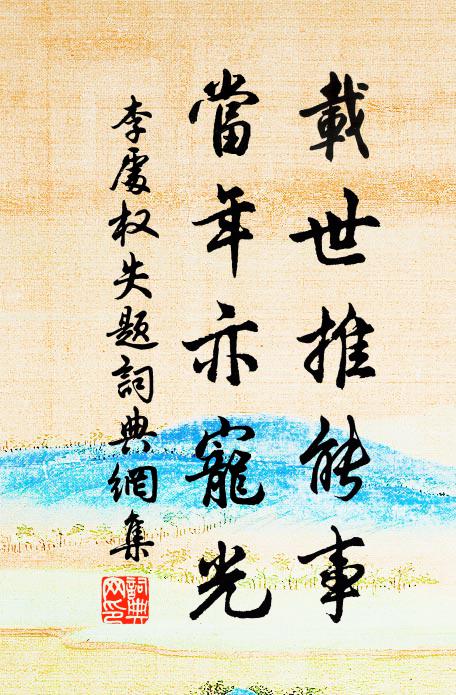 載世推能事
當年亦寵光
李處权失題詞典網集
詞典